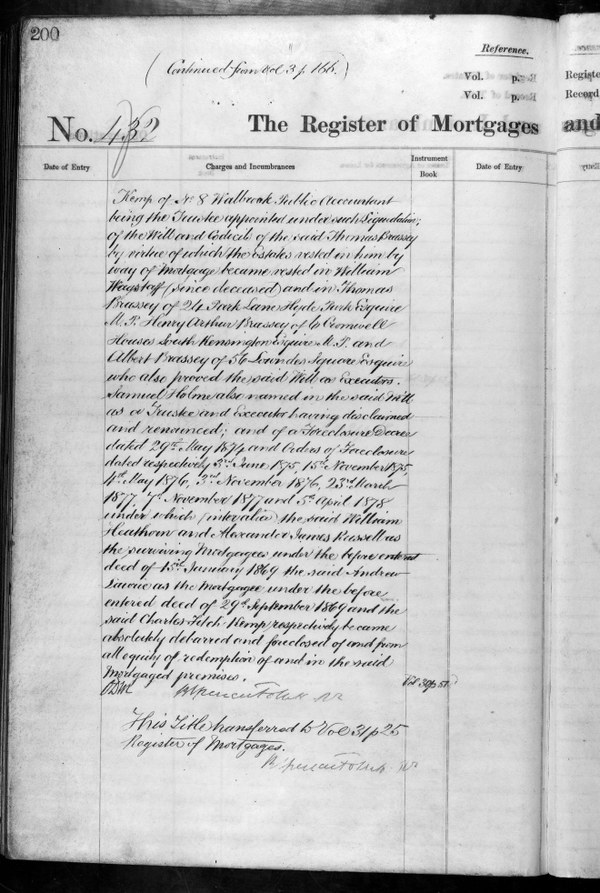 200
Reference.
(Continued from Vol 3 p. 166.)
Vol. p.
Vol. p.
No. 432
The Register of Mortgages and
Registe
Record
Date of Entry
Charges and Incumbrances
Instrument
Book
Date of Entry
Kemp of No 8 Walbrook Public Accountant
being the Trustee appointed under such Liquidation;
of the Will and Codicils of the said Thomas Brassey
by virtue of which the Estates vested in him by
way of Mortgage became vested in William
Wagstaff (since deceased) and in Thomas
Brassey of 24 Park Lane Hyde Park Esquire
M.P. Henry Arthur Brassey of 6 Cromwell
Houses South Kensington Esquire M.P. and
Albert Brassey of 56 Lowndes Square Esquire
who also proved the said Will as Executors.
Samuel Holme also named in the said Will
as a Trustee and Executor having disclaimed
and renounced; and of a Foreclosure Decree
dated 29th May 1874 and Orders of Foreclosure
dated respectively 3rd June 1875, 15th November 1875,
4th May 1876, 3rd November 1876, 23rd March
1877, 7th November 1877 and 5th April 1878
under which (inter alia) the said William
Heathorn and Alexander James Russell as
the surviving Mortgagees under the before entered
deed of 15th January 1869 the said Andrew
Lawrie as the Mortgagee under the before
entered deed of 29th September 1869 and the
said Charles Fitch Kemp respectively became
absolutely debarred and foreclosed of and from
all equity of redemption of and in the said
Mortgaged premises.
Vol 30 p 51
This Title transferred to Vol 31 p 25
Register of Mortgages.